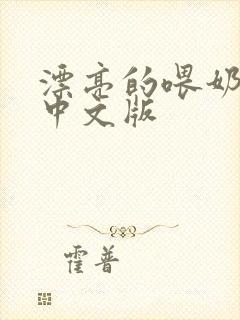 漂亮的喂奶
中文版
霍普